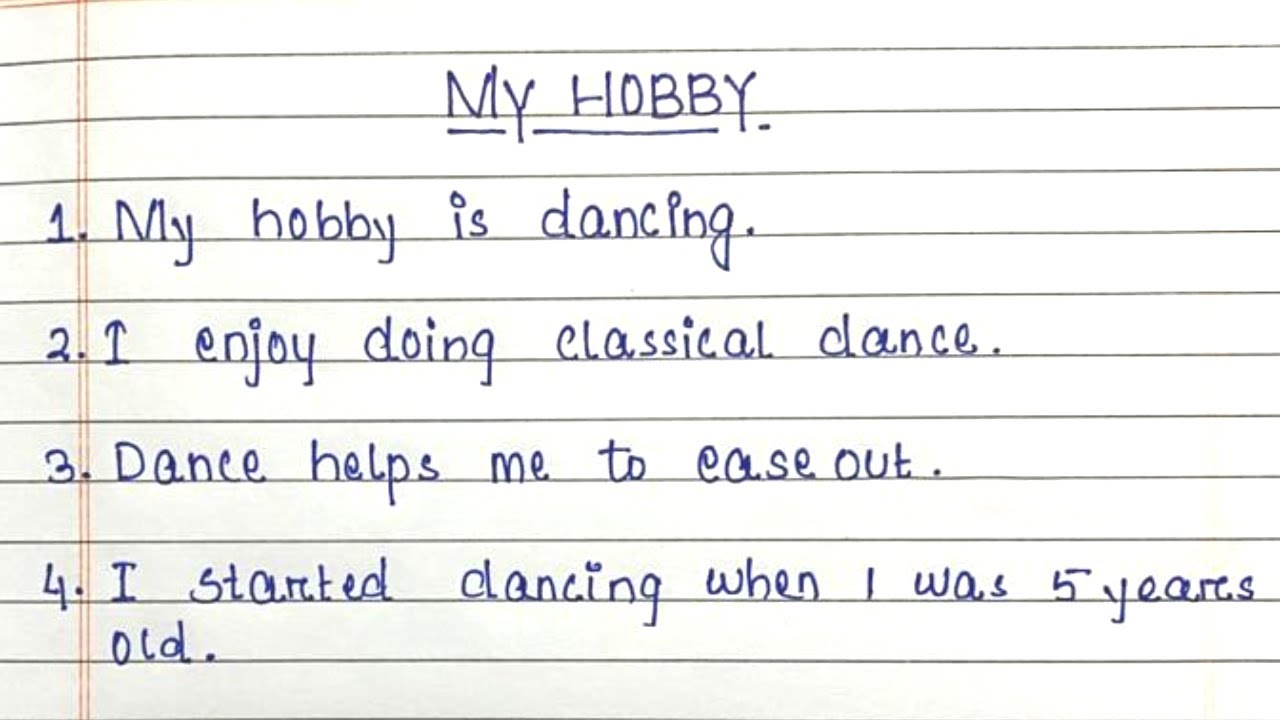 MY HOBBY.
1. My hobby is dancing.
2. I enjoy doing classical dance.
3. Dance helps me to ease out.
4. I started dancing when I was 5 years
old.